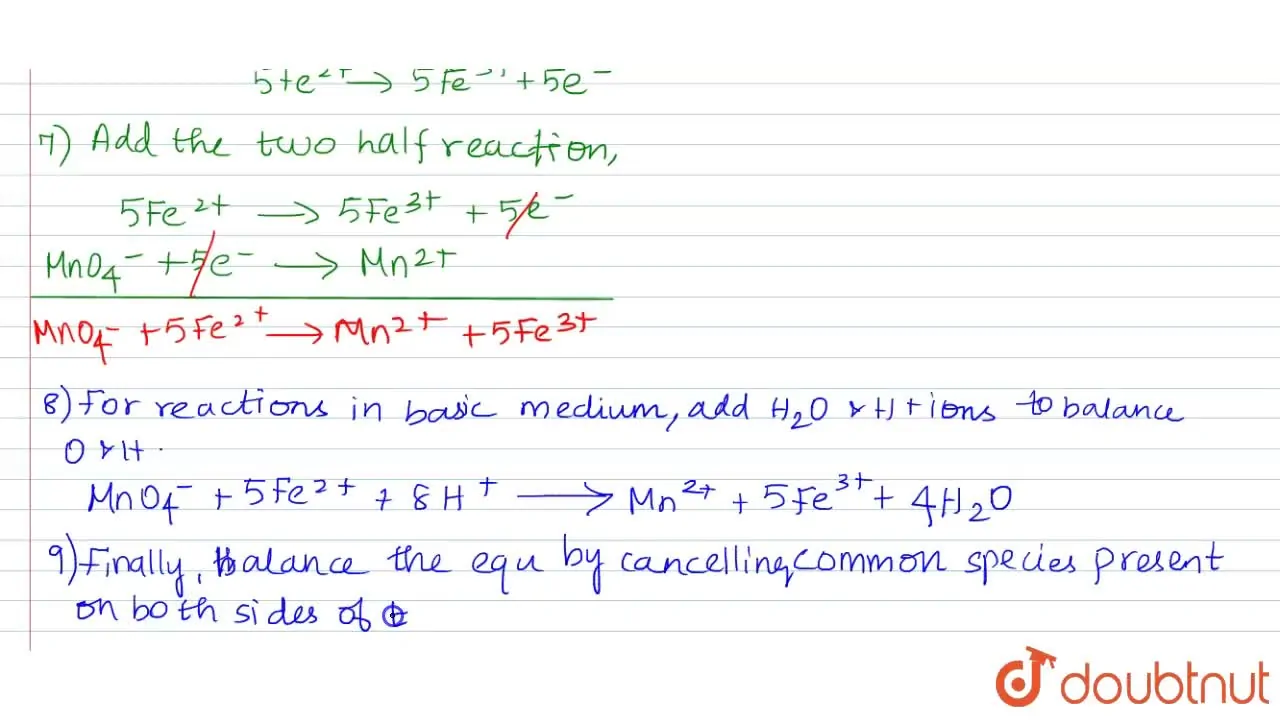 5Fe²⁺ → 5Fe³⁺ + 5e⁻
7) Add the two half reaction,
5Fe²⁺ → 5Fe³⁺ + 5e⁻
MnO₄⁻ + 5e⁻ → Mn²⁺
MnO₄⁻ + 5Fe²⁺ → Mn²⁺ + 5Fe³⁺
8) For reactions in basic medium, add H₂O & H+ ions to balance
O & H.
MnO₄⁻ + 5Fe²⁺ + 8H⁺ → Mn²⁺ + 5Fe³⁺ + 4H₂O
9) Finally, balance the equ by cancelling common species present
on both sides of
doubtnut